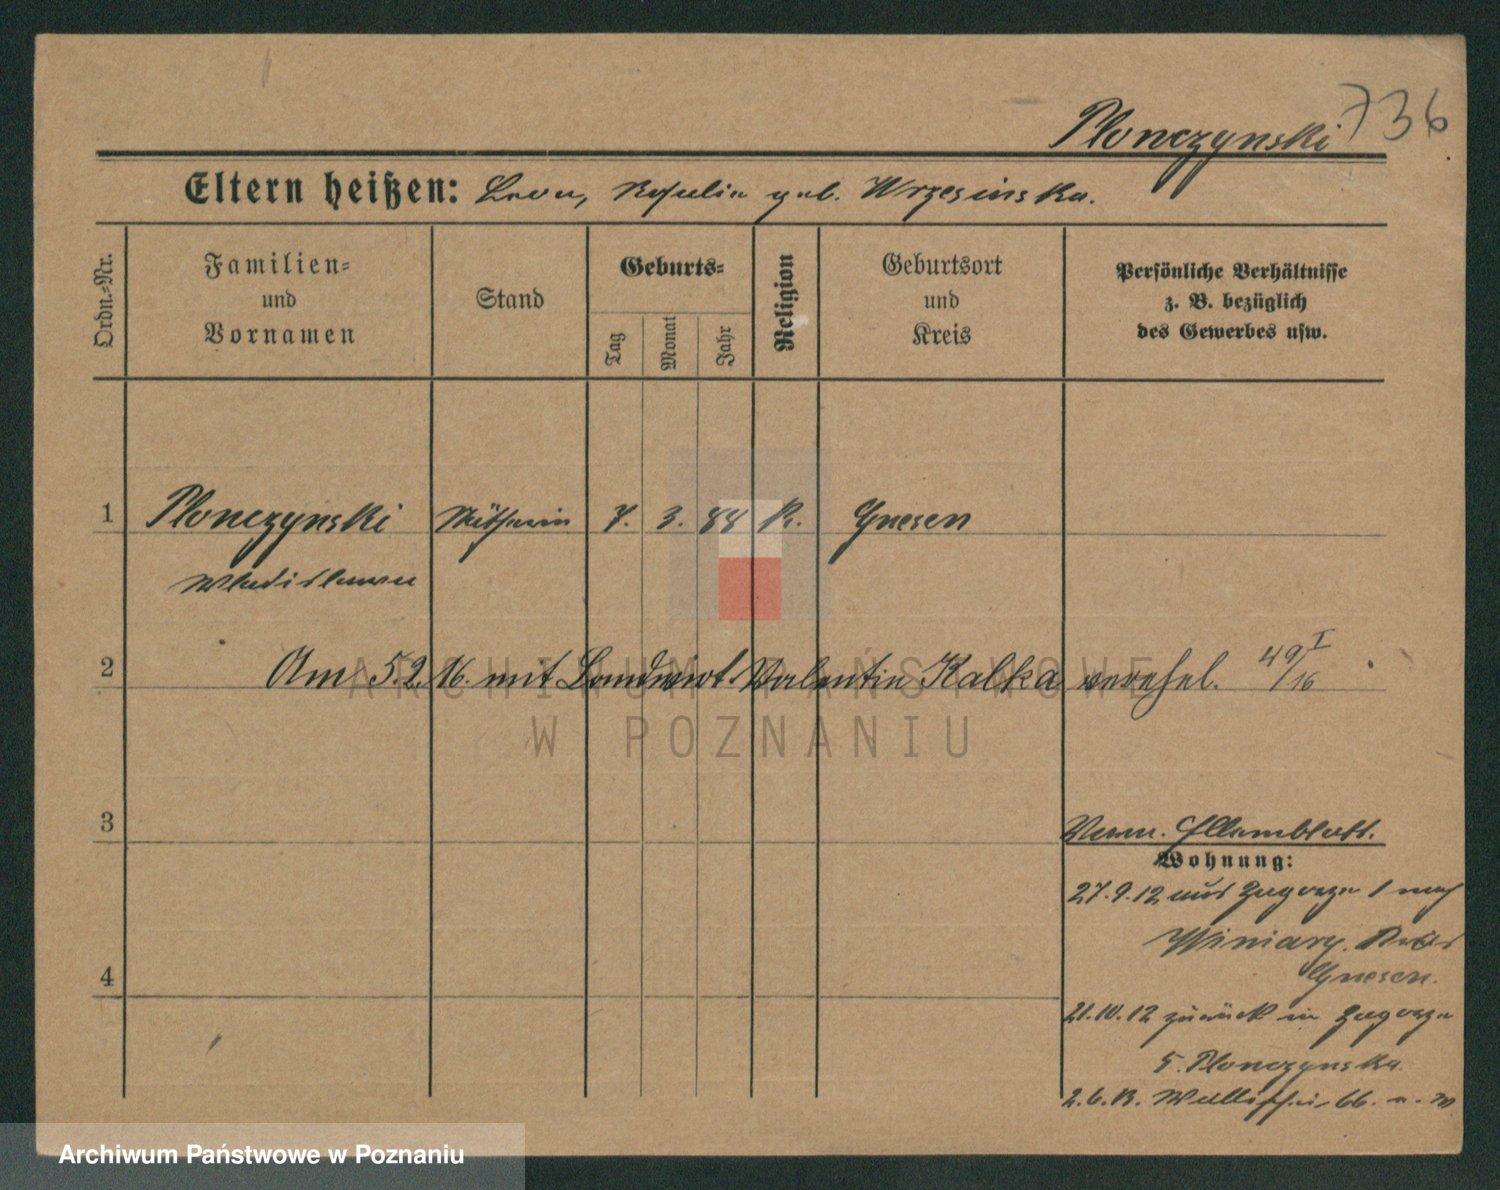 736
Plonczynski
Eltern heißen: Leon, Rosalie geb. Wrzesinska.
Ordn.-Nr.
Familien-
und
Vornamen
Stand
Geburts-
Tag
Monat
Jahr
Religion
Geburtsort
und
Kreis
Persönliche Verhältnisse
z. B. bezüglich
des Gewerbes usw.
1 Plonczynski 7. 3. 88 K. Gnesen
Wladislawa
2 Am 5.2.16. mit Landwirt Valentin Kalka verehel. 49/16 I
3
Wohnung:
27.9.12 aus Zagorze 1 nach
Winiary. Kreis
Gnesen.
4
21.10.12 zurück in Zagorze
5. Plonczynska
2.6.13. Wallischei 66.
ARCHIWUM PAŃSTWOWE
W POZNANIU
Archiwum Państwowe w Poznaniu